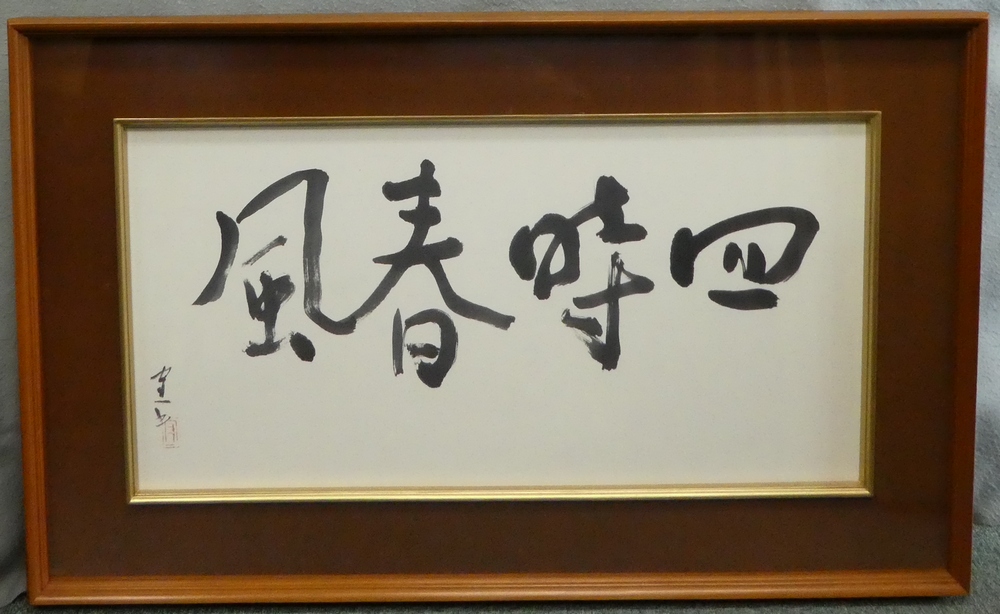 四時春風